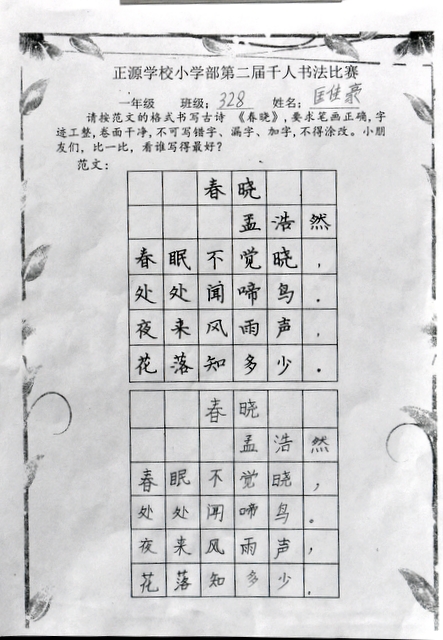 正源学校小学部第二届千人书法比赛
一年级 班级：328 姓名：匡佳豪
请按范文的格式书写古诗《春晓》,要求笔画正确,字
迹工整,卷面干净,不可写错字、漏字、加字,不得涂改。小朋
友们，比一比，看谁写得最好？
范文：
春晓
孟浩然
春眠不觉晓，
处处闻啼鸟．
夜来风雨声，
花落知多少．
春晓
孟浩然
春眠不觉晓，
处处闻啼鸟。
夜来风雨声，
花落知多少．